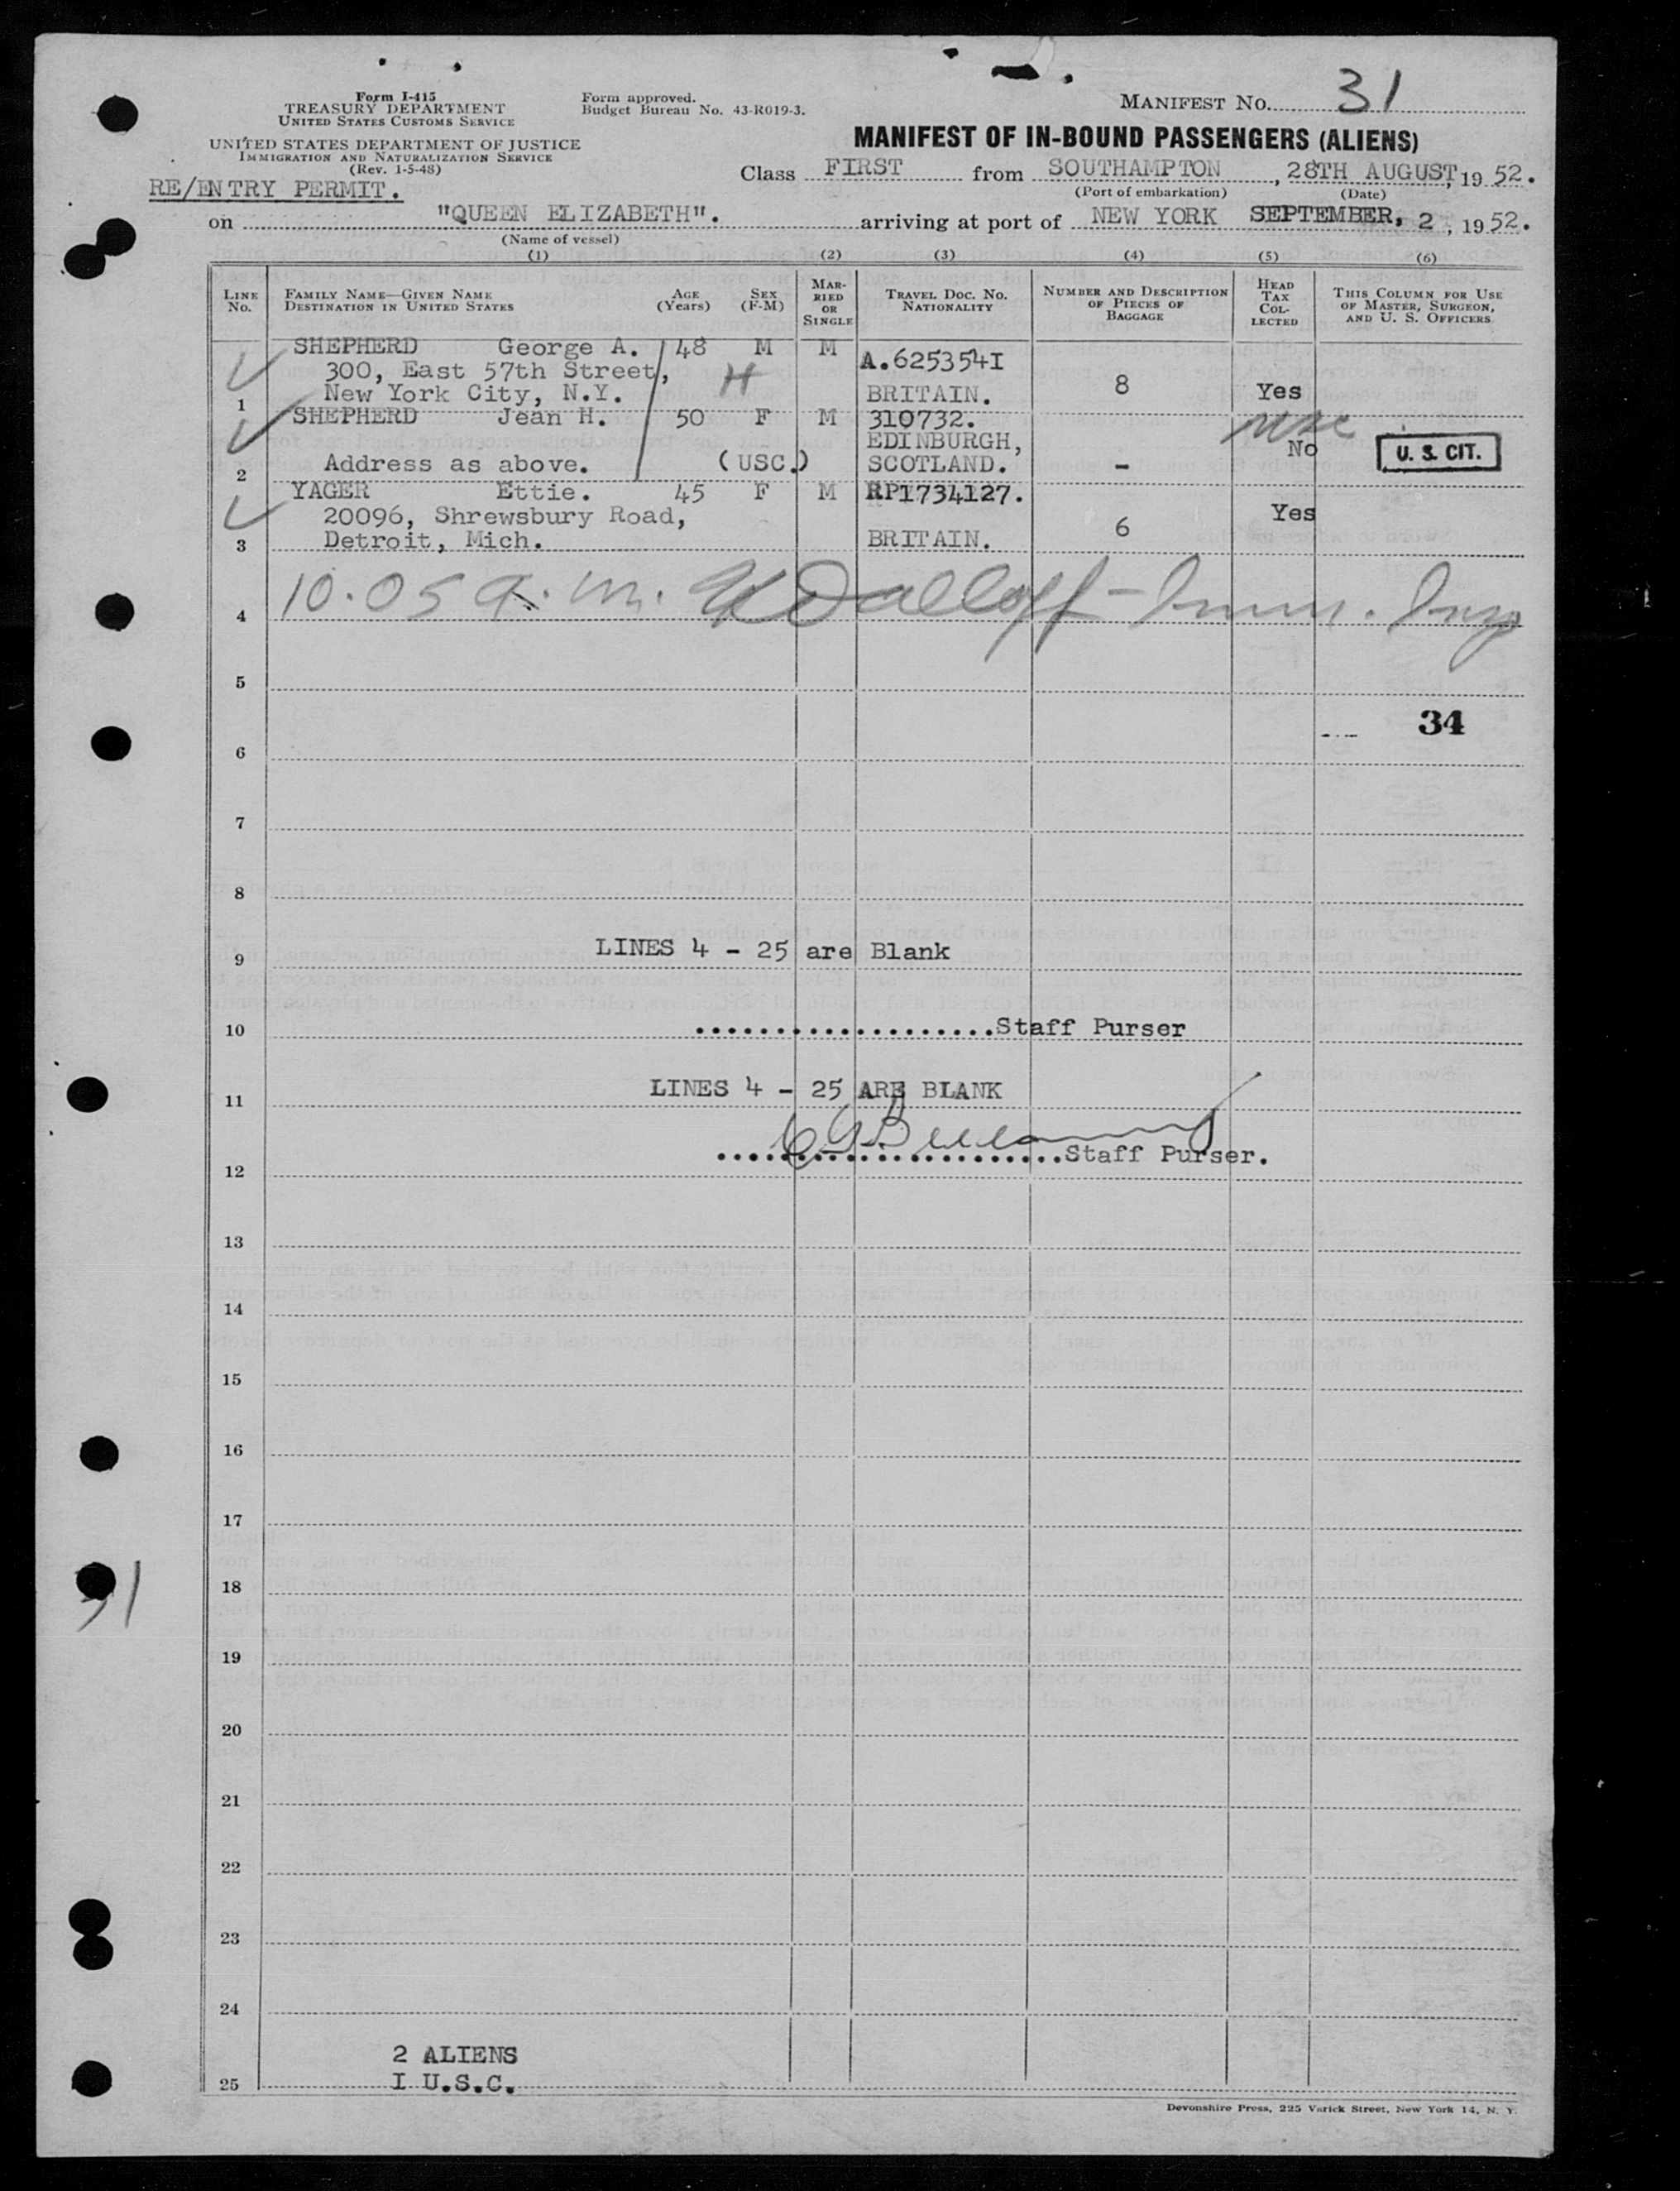 Form I-415
TREASURY DEPARTMENT
UNITED STATES CUSTOMS SERVICE
UNITED STATES DEPARTMENT OF JUSTICE
IMMIGRATION AND NATURALIZATION SERVICE
(Rev. 1-5-48)
Form approved.
Budget Bureau No. 43-R019-3.
MANIFEST NO. 31
MANIFEST OF IN-BOUND PASSENGERS (ALIENS)
RE/ENTRY PERMIT.
Class FIRST from SOUTHAMPTON, 28TH AUGUST, 19 52.
(Port of embarkation) (Date)
on "QUEEN ELIZABETH". arriving at port of NEW YORK SEPTEMBER, 2, 19 52.
(Name of vessel)
(1) (2) (3) (4) (5) (6)
LINE No. FAMILY NAME—GIVEN NAME DESTINATION IN UNITED STATES AGE (Years) SEX (F-M) MARRIED OR SINGLE TRAVEL DOC. NO. NATIONALITY NUMBER AND DESCRIPTION OF PIECES OF BAGGAGE HEAD TAX COLLECTED THIS COLUMN FOR USE OF MASTER, SURGEON, AND U. S. OFFICERS
SHEPHERD George A. 48 M M A.6253541
300, East 57th Street, H
1 New York City, N.Y. BRITAIN. 8 Yes
SHEPHERD Jean H. 50 F M 310732. usc
EDINBURGH, No U. S. CIT.
2 Address as above. (USC.) SCOTLAND. -
YAGER Ettie. 45 F M RP1734127.
20096, Shrewsbury Road, 6 Yes
3 Detroit, Mich. BRITAIN.
4 10.05 a.m. Imm. Insp
5
34
6
7
8
9 LINES 4 - 25 are Blank
10 ...................Staff Purser
11 LINES 4 - 25 ARE BLANK
12 ......................Staff Purser.
13
14
15
16
17
18
31
19
20
21
22
23
24
2 ALIENS
25 I U.S.C.
Devonshire Press, 225 Varick Street, New York 14, N. Y.